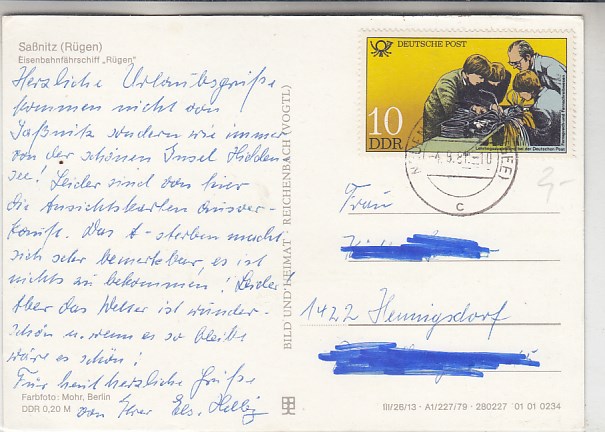 Saßnitz (Rügen)
Eisenbahnfährschiff „Rügen"
Herzliche Urlaubsgrüße
kommen nicht von
Saßnitz sondern wie immer
von der schönen Insel Hidden
see! Leider sind von hier
die Ansichtskarten ausver-
kauft. Das -sterben macht
sich sehr bemerkbar, es ist
nichts zu bekommen! Leider!
Aber das Wetter ist wunder-
schön u. wenn es so bleibt
wäre es schön!
Für heut herzliche Grüße
von Ihrer Els.
Farbfoto: Mohr, Berlin
DDR 0,20 M
BILD UND HEIMAT · REICHENBACH (VOGTL)
DEUTSCHE POST
10
DDR
der Deutschen Post
-4.9.81.-10
SEE)
c
2,-
Frau
1422 Hennigsdorf
III/26/13 · A1/227/79 · 280227 01 01 0234